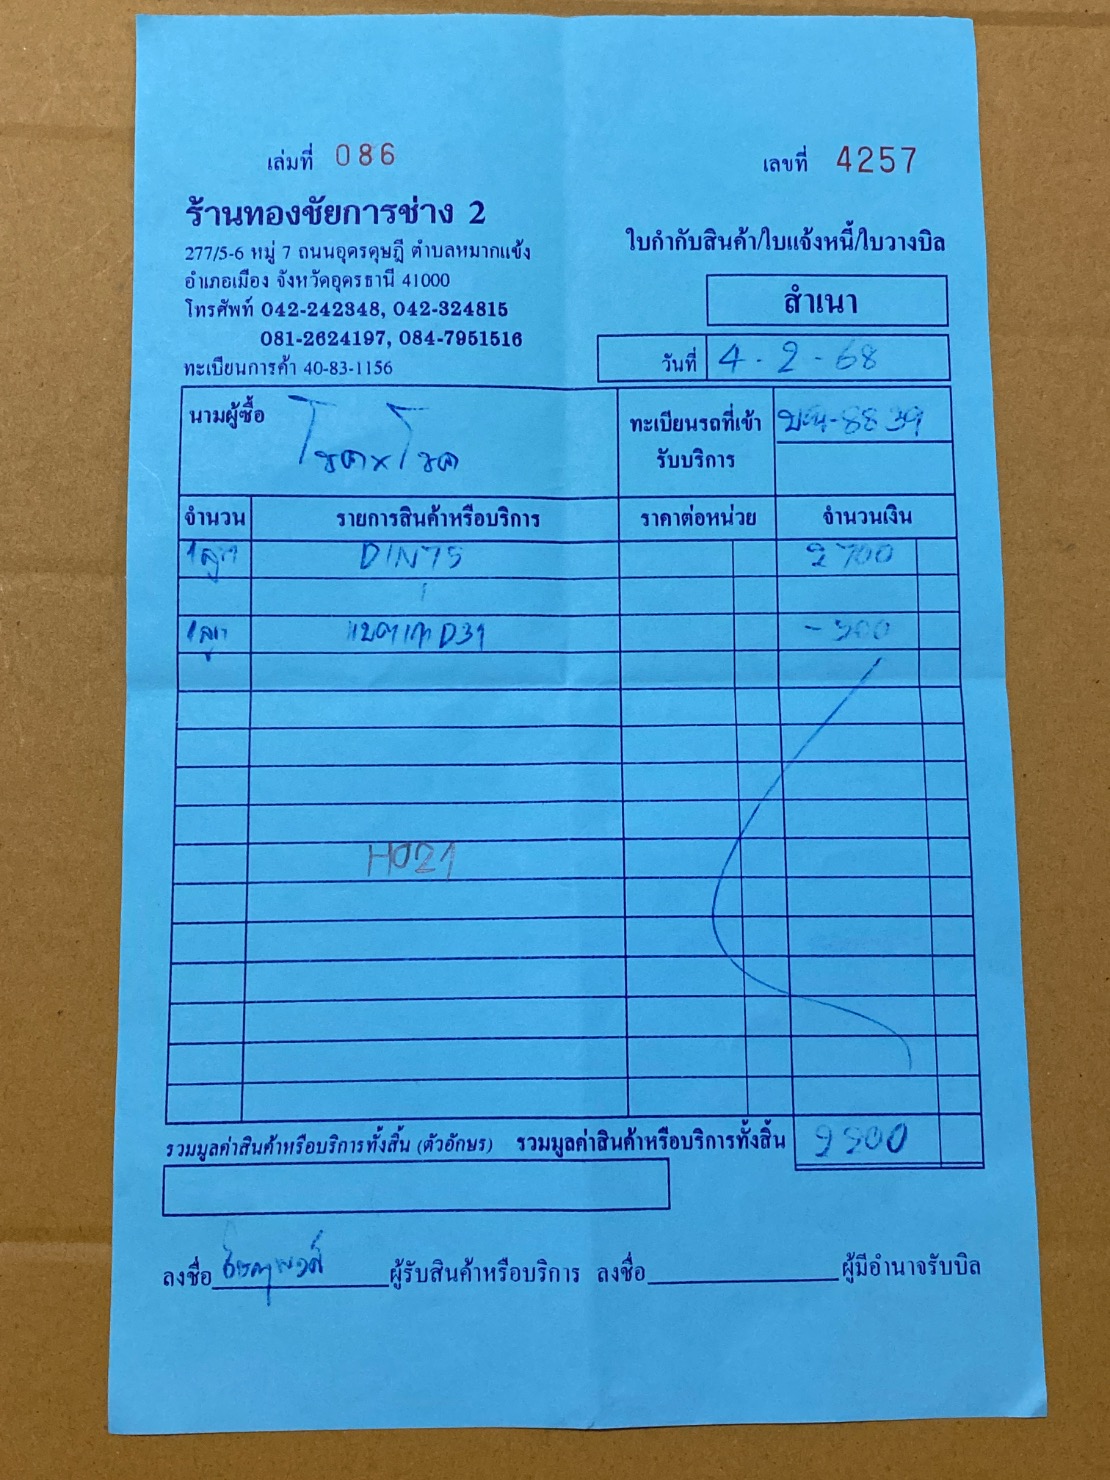 เล่มที่ 086
เลขที่ 4257
ร้านทองชัยการช่าง 2
277/5-6 หมู่ 7 ถนนอุดรดุษฎี ตำบลหมากแข้ง
อำเภอเมือง จังหวัดอุดรธานี 41000
โทรศัพท์ 042-242348, 042-324815
081-2624197, 084-7951516
ทะเบียนการค้า 40-83-1156
ใบกำกับสินค้า/ใบแจ้งหนี้/ใบวางบิล
สำเนา
วันที่ 4-2-68
นามผู้ซื้อ
ทะเบียนรถที่เข้า
รับบริการ
-8839
จำนวน รายการสินค้าหรือบริการ ราคาต่อหน่วย จำนวนเงิน
1ลูก DIN75 2700
1ลูก D31
H021
รวมมูลค่าสินค้าหรือบริการทั้งสิ้น (ตัวอักษร) รวมมูลค่าสินค้าหรือบริการทั้งสิ้น
ลงชื่อ ผู้รับสินค้าหรือบริการ ลงชื่อ ผู้มีอำนาจรับบิล